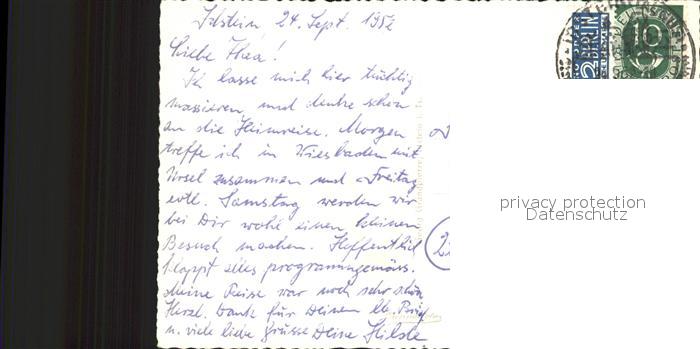 Idstein, 24. Sept. 1952
Liebe Thea!
Ich lasse mich hier tüchtig
massieren und denke schon
an die Heimreise. Morgen
treffe ich in Wiesbaden mit
Ursel zusammen und Freitag
evtl. Samstag werden wir
bei Dir wohl einen kleinen
Besuch machen. Hoffentlich
klappt alles programmgemäss.
Meine Reise war noch sehr schön
Herzl. Dank für Deinen lb. Brief
u. viele liebe Grüsse Deine Hilde
2 BERLIN
10
privacy protection
Datenschutz